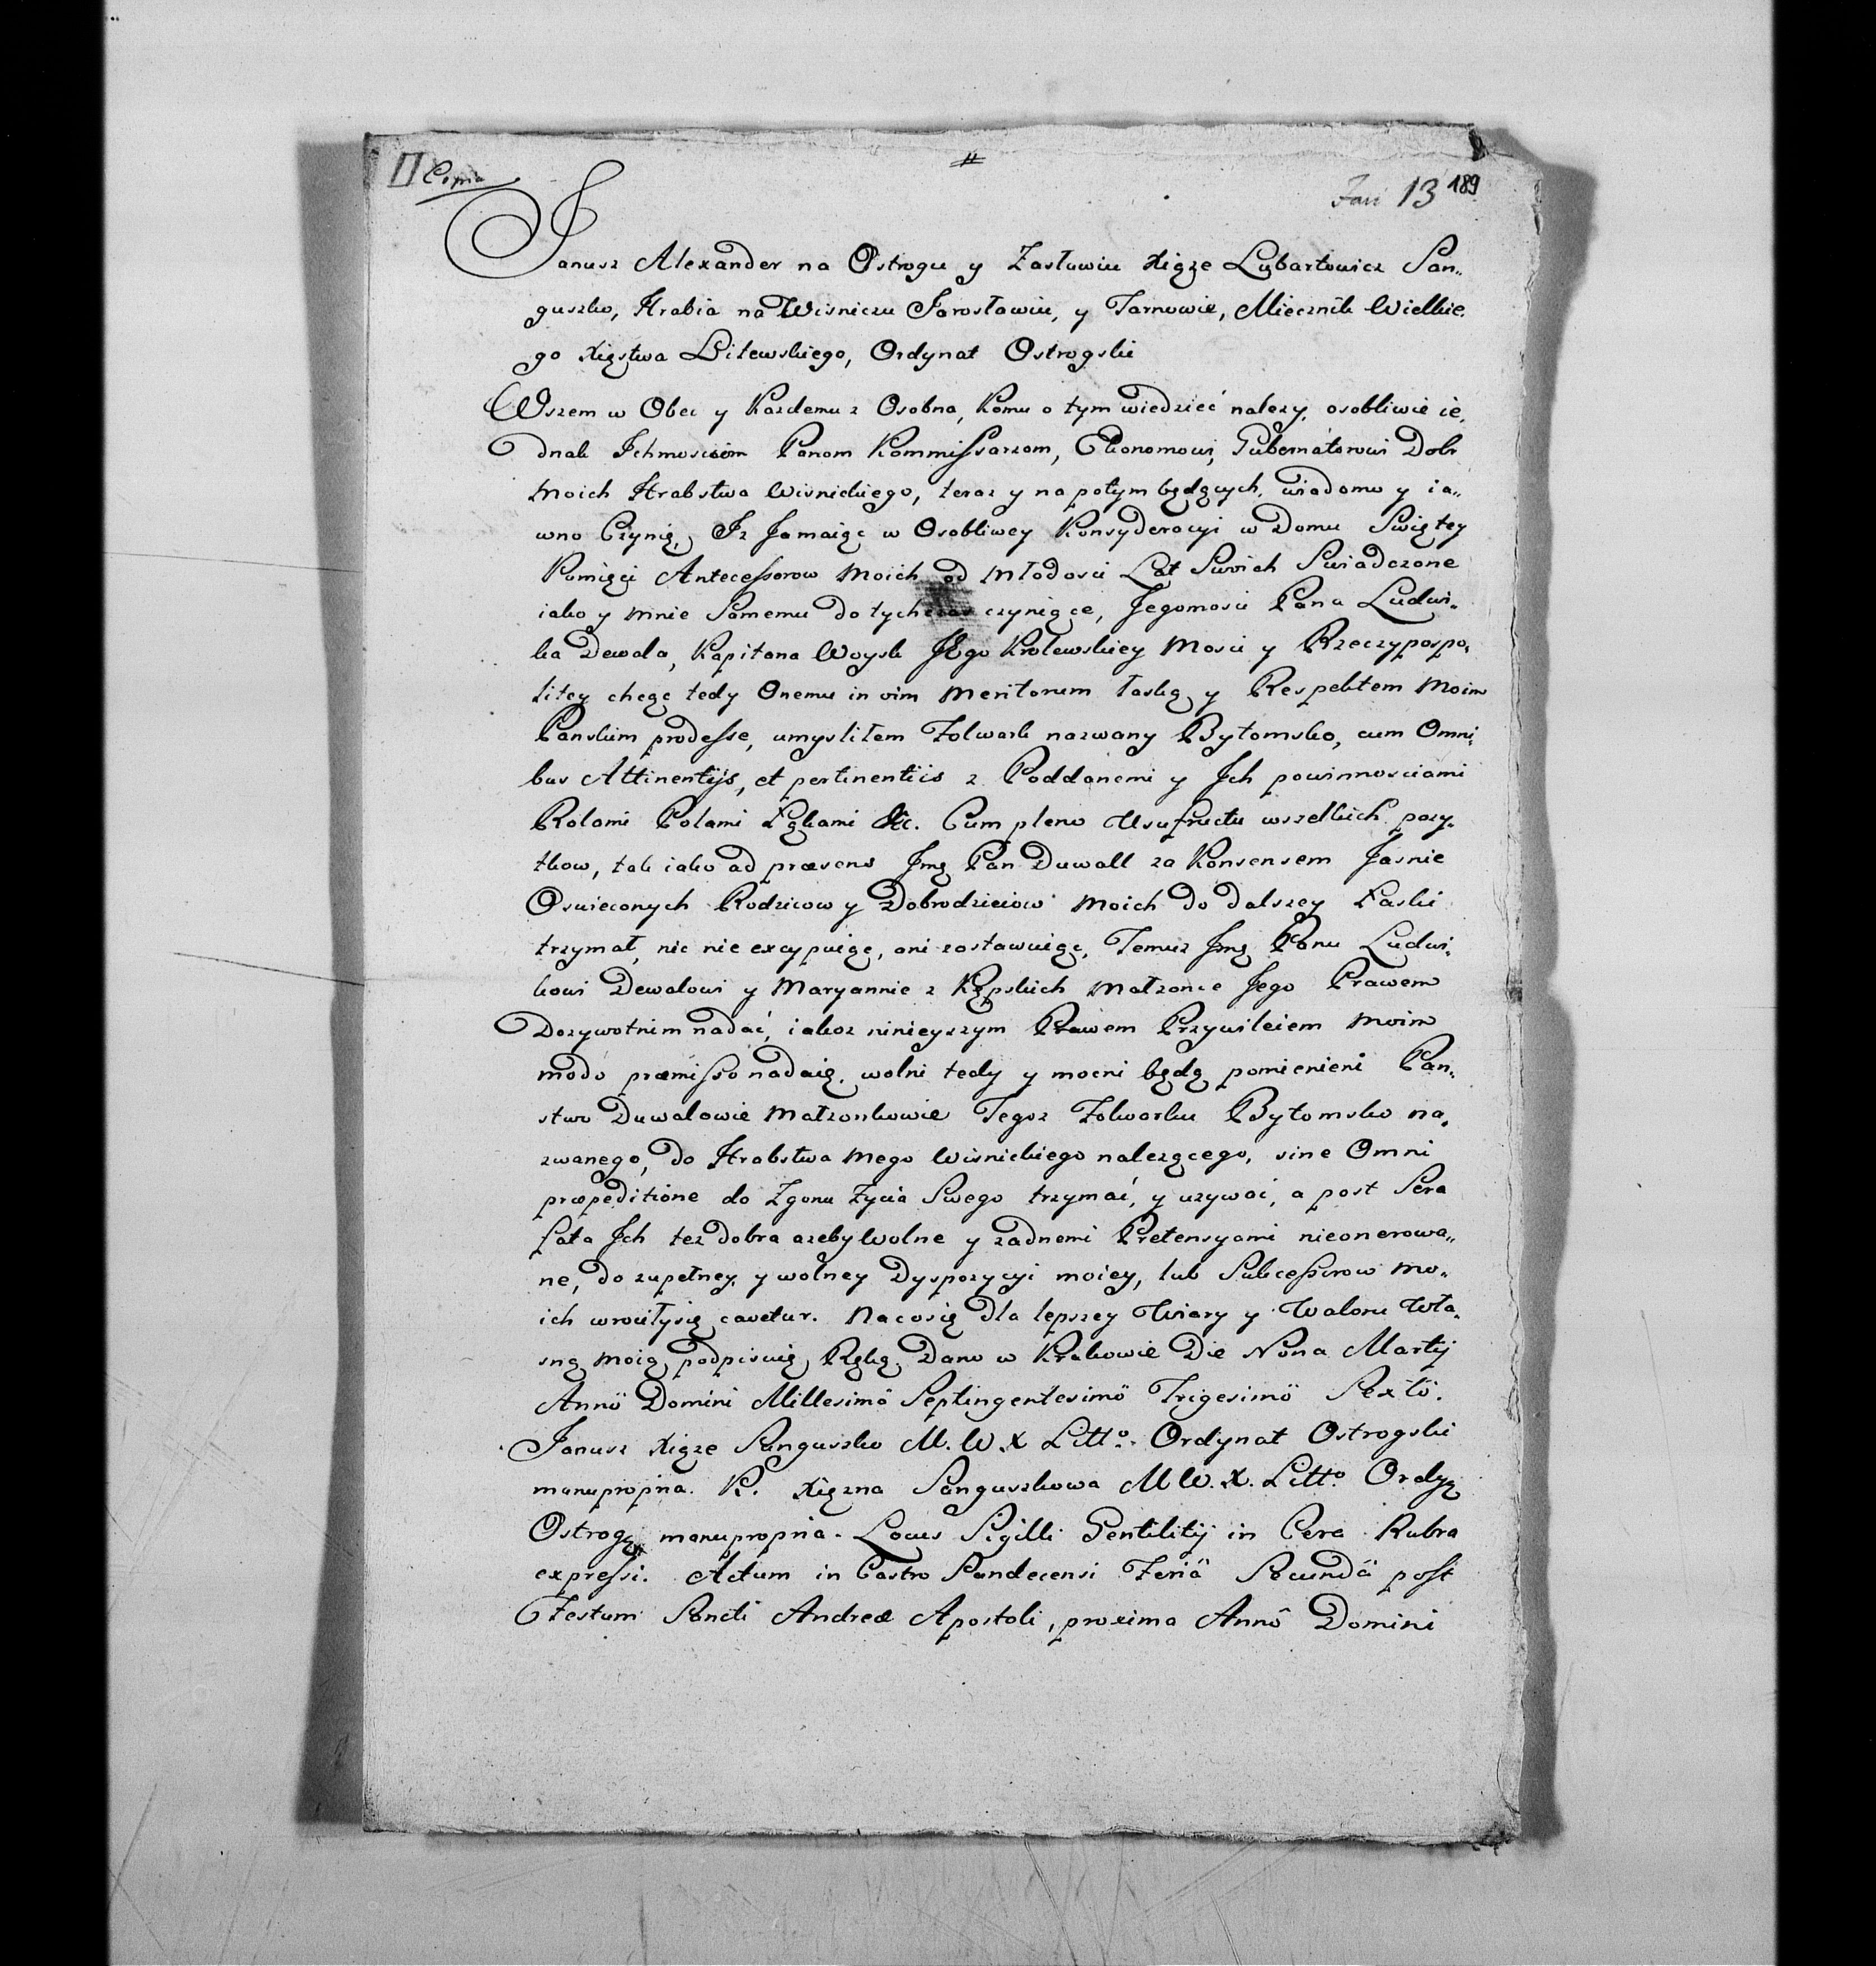 Copia
189
Fasc 13
Janusz Alexander na Ostrogu y Zasławiu Xiąże Lubartowicz San„
guszko, Hrabia na Wisniczu Jarosławiu, y Tarnowie, Miecznik Wielkie.
go Xięstwa Litewskiego, Ordynat Ostrogski
Wszem w Obec y Kazdemu z Osobna, komu o tym wiedzieć nalezy, osobliwie ie,
dnak Ichmosciom Panom Kommissarzom, Ekonomowi, Gubernatorowi Dobr
Moich Hrabstwa Wisnickiego, teraz y na potym będących, wiadomo y ia„
wno Czynię, Iz Ja maiąc w Osobliwey Konsyderacyi w Domu Swiętey
Pamięci Antecessorow Moich od Młodosci Lat Swoich Swiadczone
iako y Mnie Samemu do tychczas czyniące, Jegomosci Pana Ludwi„
ka Dewala, Kapitana Woysk JEgo Krolewskiey Mosci y Rzeczypospo,
litey chcąc tedy Onemu in vim Meritorum łaską y Respektem Moim
Panskim prodesse, umysliłem Folwark nazwany Bytomsko, cum Omni,
bus Attinentijs, et pertinentiis z Poddanemi y Ich powinnosciami
Rolami Polami Łąkami &c. Cum pleno Usufructu wszelkich pozy,
tkow, tak iako ad praesens Jmę Pan Duwall za Konsensem Jasnie
Oswieconych Rodzicow y Dobrodzieiow Moich do dalszey Łaski
trzymał, nic nie excypuiąc, ani zostawuiąc, Temuz Jmę Panu Ludwi,
kowi Dewalowi y Maryannie z Kępskich Małzonce Jego Prawem
Dozywotnim nadać, iakoz ninieyszym Prawem Przywileiem Moim
modo praemisso nadaię. wolni tedy y mocni będą pomienieni Pan,
stwo Duwalowie Małzonkowie Tegoz Folwarku Bytomsko na,
zwanego, do Hrabstwa Mego Wisnickiego nalezącego, sine Omni
praepeditione do Zgonu Zycia Swego trzymać, y uzywać, a post Sera
fata Ich tez dobra azeby Wolne y zadnemi Pretensyami nieonerowa„
ne, do zupełney y wolney Dyspozycyi moiey, lub Sukcessorow Mo„
ich wrociły się cavetur. Na co się dla lepszey Wiary y Waloru Wła,
sną Moią podpisuię Ręką. Dano w Krakowie Die Nona Martij
Annô Domini Millesimô Septingentesimô Trigesimô Sextô.
Janusz Xiąze Sanguszko M. W. X Litto. Ordynat Ostrogski
manupropria. K. Xiężna Sanguszkowa M W. X. Litto. Ordy
Ostrog manupropria. Locus Sigilli Gentilitij in Cera Rubra
expressi. Actum in Castro Sandecensi Feriâ Secundâ post
Festum Sancti Andreae Apostoli, proxima Annô Domini